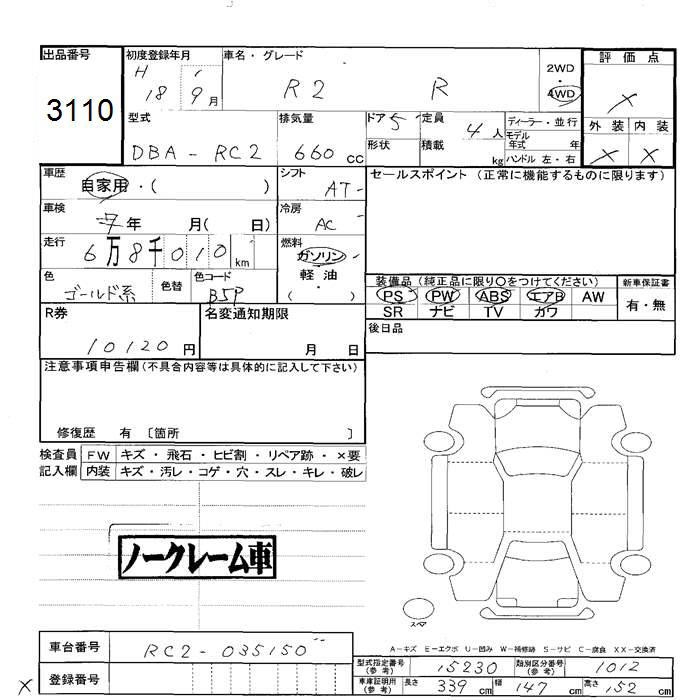 出品番号
3110
初度登録年月
H 18 9月
車名・グレード
R2 R
2WD
4WD
評価点
×
外装 内装
× ×
型式
DBA - RC2
排気量
660 cc
ドア 5
形状
定員 4人
積載 kg
ディーラー・並行
モデル年式 年
ハンドル 左・右
車歴
自家用・( )
シフト
AT
車検
年 月( 日)
冷房
AC
走行
6万8千010km
燃料
ガソリン
軽油
( )
色
ゴールド系
色替
色コード
B5P
セールスポイント (正常に機能するものに限ります)
装備品 (純正品に限り〇をつけてください)
PS PW ABS エアB AW
SR ナビ TV カワ
新車保証書
有・無
後日品
R券
10120円
名変通知期限
月 日
注意事項申告欄 (不具合内容等は具体的に記入して下さい)
修復歴 有 〔箇所 〕
検査員記入欄
FW キズ・飛石・ヒビ割・リペア跡・×要
内装 キズ・汚レ・コゲ・穴・スレ・キレ・破レ
ノークレーム車
スペア
A-キズ E-エクボ U-凹み W-補修跡 S-サビ C-腐食 XX-交換済
車台番号
RC2-035150
登録番号
×
型式指定番号 (参考) 15230
類別区分番号 (参考) 1012
車庫証明用 (参考) 長さ 339cm 幅 147cm 高さ 152cm